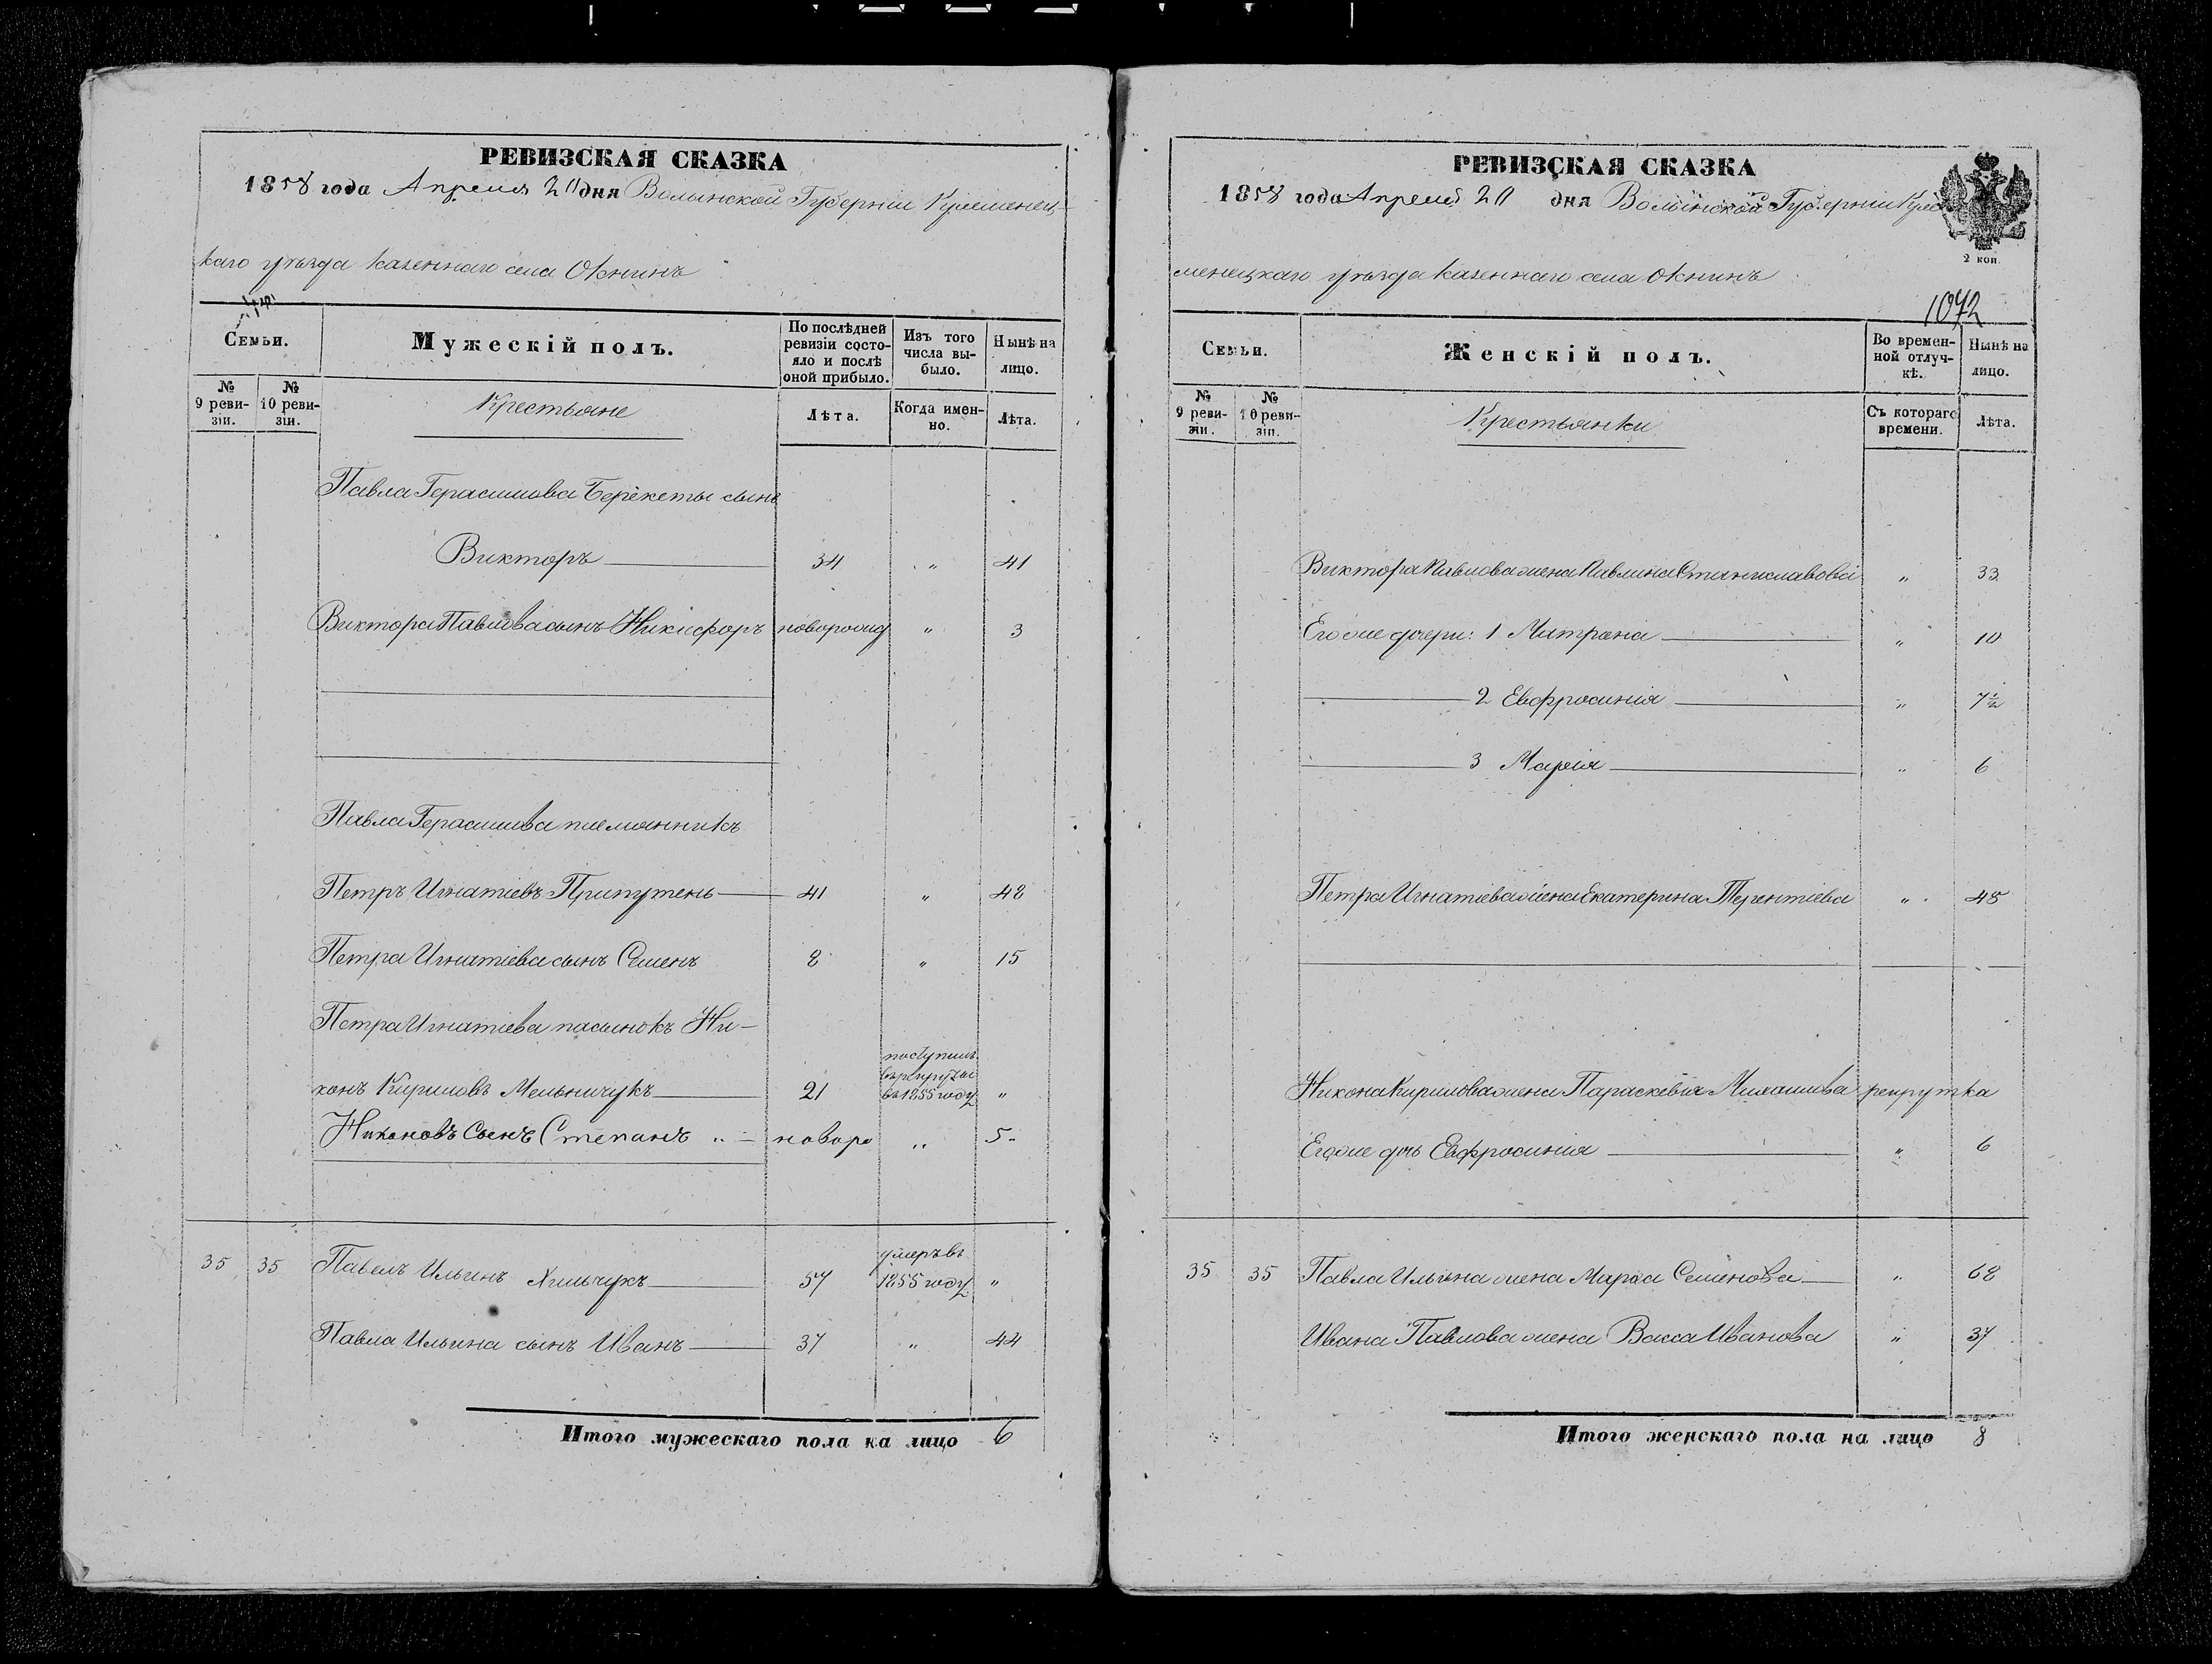 РЕВИЗСКАЯ СКАЗКА
1858 года Апреля 20 дня Волынской Губерніи Кременец-
каго уѣзда казеннаго села Окнинъ
Семьи.
Мужескій полъ.
По послѣдней ревизіи состояло и послѣ оной прибыло.
Изъ того числа выбыло.
Нынѣ на лицо.
№ 9 ревизіи.
№ 10 ревизіи.
Крестьяне
Лѣта.
Когда именно.
Лѣта.
Павла Герасимова Берекеты сынъ
Викторъ 34 " 41
Виктора Павлова сынъ Никифоръ новорожд " 3
Павла Герасимова племянникъ
Петръ Игнатіевъ Припутень 41 " 48
Петра Игнатіева сынъ Семенъ 8 " 15
Петра Игнатіева пасынокъ Ни-
конъ Кириловъ Мельничукъ 21 поступилъ въ рекруты въ 1855 году "
Никоновъ Сынъ Степанъ новоро " 5
35 35 Павелъ Ильинъ Хильчукъ 57 умеръ въ 1855 году "
Павла Ильина сынъ Иванъ 37 " 44
Итого мужескаго пола на лицо 6
РЕВИЗСКАЯ СКАЗКА
1858 года Апреля 20 дня Волынской Губерніи Кре
менецкаго уѣзда казеннаго села Окнинъ
2 коп.
1072
Семьи.
Женскій полъ.
Во временной отлучкѣ.
Нынѣ на лицо.
№ 9 ревизіи.
№ 10 ревизіи.
Крестьянки
Съ котораго времени.
Лѣта.
Виктора Павлова жена Павлина Станиславова " 33
Его же дочери: 1 Митрона " 10
2 Евфросинія " 7½
3 Марія " 6
Петра Игнатіева жена Екатерина Терентіева " 45
Никона Кирилова жена Параскевія Михаилова рекрутка
Его же дочь Евфросинія " 6
35 35 Павла Ильина жена Марфа Семенова " 68
Ивана Павлова жена Васса Иванова " 37
Итого женскаго пола на лицо 8